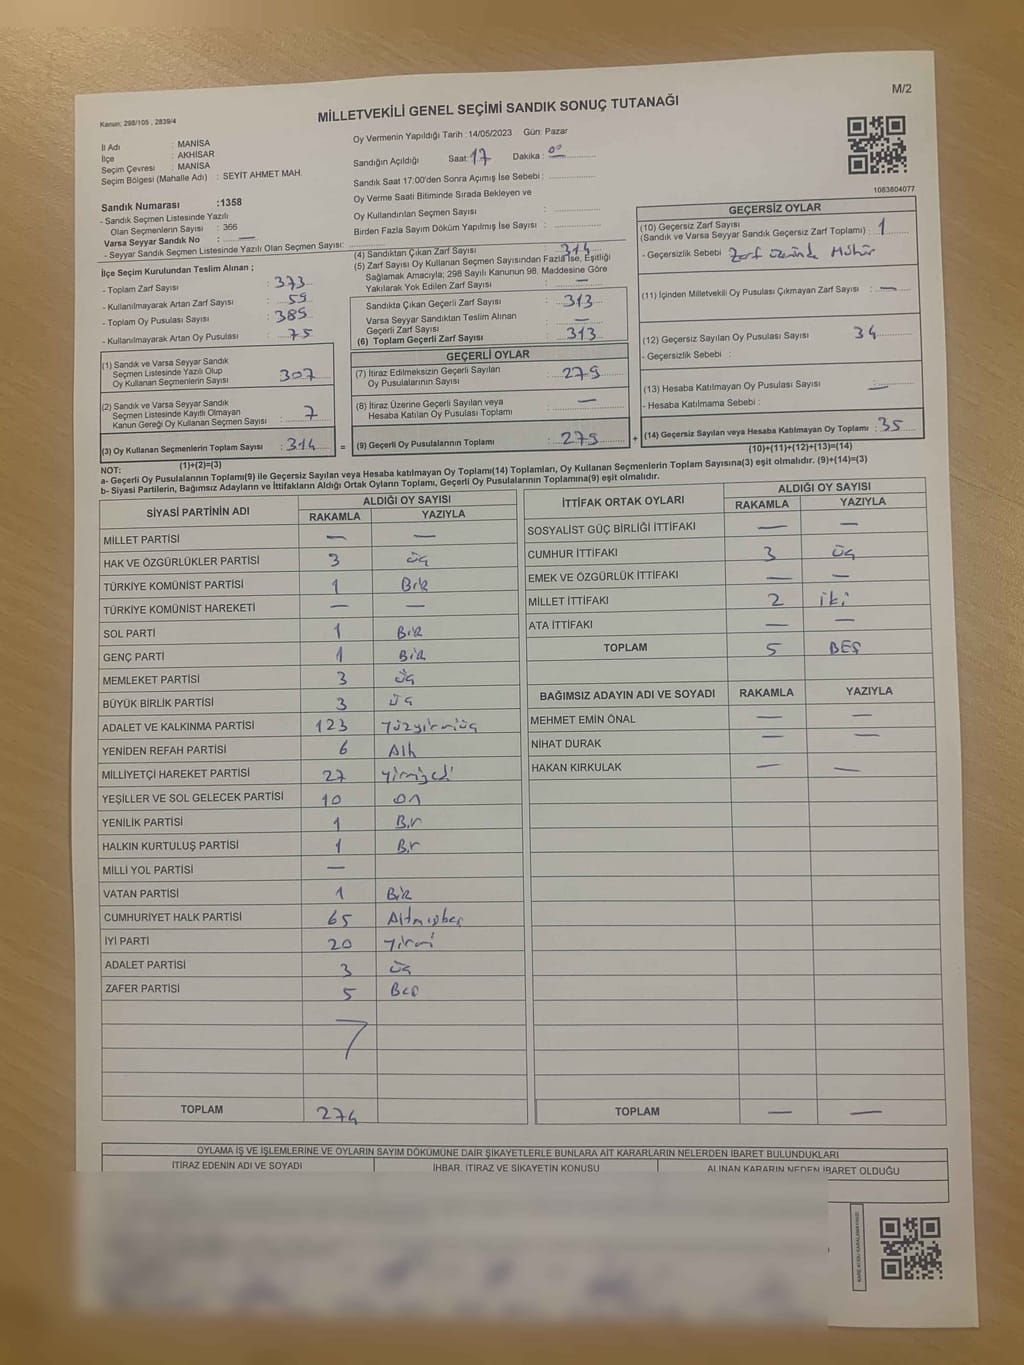 M/2
Kanun: 298/105 , 2839/4
MİLLETVEKİLİ GENEL SEÇİMİ SANDIK SONUÇ TUTANAĞI
İl Adı : MANİSA
İlçe : AKHİSAR
Seçim Çevresi : MANİSA
Seçim Bölgesi (Mahalle Adı) : SEYİT AHMET MAH.
Oy Vermenin Yapıldığı Tarih :14/05/2023 Gün: Pazar
Sandığın Açıldığı Saat: 17 Dakika : 00
Sandık Saat 17:00'den Sonra Açımış İse Sebebi :
Oy Verme Saati Bitiminde Sırada Bekleyen ve
Oy Kullandırılan Seçmen Sayısı :
Birden Fazla Sayım Döküm Yapılmış İse Sayısı :
1083804077
Sandık Numarası :1358
- Sandık Seçmen Listesinde Yazılı
Olan Seçmenlerin Sayısı : 366
Varsa Seyyar Sandık No : —
- Seyyar Sandık Seçmen Listesinde Yazılı Olan Seçmen Sayısı:
İlçe Seçim Kurulundan Teslim Alınan ;
- Toplam Zarf Sayısı : 373
- Kullanılmayarak Artan Zarf Sayısı : 59
- Toplam Oy Pusulası Sayısı : 385
- Kullanılmayarak Artan Oy Pusulası : 75
(1) Sandık ve Varsa Seyyar Sandık
Seçmen Listesinde Yazılı Olup
Oy Kullanan Seçmenlerin Sayısı : 307
(2) Sandık ve Varsa Seyyar Sandık
Seçmen Listesinde Kayıtlı Olmayan
Kanun Gereği Oy Kullanan Seçmen Sayısı : 7
(3) Oy Kullanan Seçmenlerin Toplam Sayısı : 314 =
(1)+(2)=(3)
(4) Sandıktan Çıkan Zarf Sayısı : 314
(5) Zarf Sayısı Oy Kullanan Seçmen Sayısından Fazla İse, Eşitliği
Sağlamak Amacıyla; 298 Sayılı Kanunun 98. Maddesine Göre
Yakılarak Yok Edilen Zarf Sayısı : —
Sandıkta Çıkan Geçerli Zarf Sayısı : 313
Varsa Seyyar Sandıktan Teslim Alınan
Geçerli Zarf Sayısı : —
(6) Toplam Geçerli Zarf Sayısı : 313
GEÇERLİ OYLAR
(7) İtiraz Edilmeksizin Geçerli Sayılan
Oy Pusulalarının Sayısı : 279
(8) İtiraz Üzerine Geçerli Sayılan veya
Hesaba Katılan Oy Pusulası Toplamı : —
(9) Geçerli Oy Pusulalarının Toplamı : 279 +
GEÇERSİZ OYLAR
(10) Geçersiz Zarf Sayısı
(Sandık ve Varsa Seyyar Sandık Geçersiz Zarf Toplamı) : 1
- Geçersizlik Sebebi : Zarf üzerinde Mühür
(11) İçinden Milletvekili Oy Pusulası Çıkmayan Zarf Sayısı : —
(12) Geçersiz Sayılan Oy Pusulası Sayısı : 34
- Geçersizlik Sebebi :
(13) Hesaba Katılmayan Oy Pusulası Sayısı : —
- Hesaba Katılmama Sebebi :
(14) Geçersiz Sayılan veya Hesaba Katılmayan Oy Toplamı : 35
(10)+(11)+(12)+(13)=(14)
NOT:
a- Geçerli Oy Pusulalarının Toplamı(9) ile Geçersiz Sayılan veya Hesaba katılmayan Oy Toplamı(14) Toplamları, Oy Kullanan Seçmenlerin Toplam Sayısına(3) eşit olmalıdır. (9)+(14)=(3)
b- Siyasi Partilerin, Bağımsız Adayların ve İttifakların Aldığı Ortak Oyların Toplamı, Geçerli Oy Pusulalarının Toplamına(9) eşit olmalıdır.
SİYASİ PARTİNİN ADI ALDIĞI OY SAYISI
RAKAMLA YAZIYLA
MİLLET PARTİSİ — —
HAK VE ÖZGÜRLÜKLER PARTİSİ 3 üç
TÜRKİYE KOMÜNİST PARTİSİ 1 BiR
TÜRKİYE KOMÜNİST HAREKETİ — —
SOL PARTİ 1 BiR
GENÇ PARTİ 1 BiR
MEMLEKET PARTİSİ 3 üç
BÜYÜK BİRLİK PARTİSİ 3 üç
ADALET VE KALKINMA PARTİSİ 123 Yüzyirmiüç
YENİDEN REFAH PARTİSİ 6 Altı
MİLLİYETÇİ HAREKET PARTİSİ 27 yirmiyedi
YEŞİLLER VE SOL GELECEK PARTİSİ 10 on
YENİLİK PARTİSİ 1 Bir
HALKIN KURTULUŞ PARTİSİ 1 Bir
MİLLİ YOL PARTİSİ —
VATAN PARTİSİ 1 BiR
CUMHURİYET HALK PARTİSİ 65 Altmışbeş
İYİ PARTİ 20 yirmi
ADALET PARTİSİ 3 üç
ZAFER PARTİSİ 5 Beş
TOPLAM 274
İTTİFAK ORTAK OYLARI ALDIĞI OY SAYISI
RAKAMLA YAZIYLA
SOSYALİST GÜÇ BİRLİĞİ İTTİFAKI — —
CUMHUR İTTİFAKI 3 üç
EMEK VE ÖZGÜRLÜK İTTİFAKI — —
MİLLET İTTİFAKI 2 iki
ATA İTTİFAKI — —
TOPLAM 5 BEŞ
BAĞIMSIZ ADAYIN ADI VE SOYADI RAKAMLA YAZIYLA
MEHMET EMİN ÖNAL — —
NİHAT DURAK — —
HAKAN KIRKULAK — —
TOPLAM — —
OYLAMA İŞ VE İŞLEMLERİNE VE OYLARIN SAYIM DÖKÜMÜNE DAİR ŞİKAYETLERLE BUNLARA AİT KARARLARIN NELERDEN İBARET BULUNDUKLARI
İTİRAZ EDENİN ADI VE SOYADI İHBAR, İTİRAZ VE ŞİKAYETİN KONUSU ALINAN KARARIN NEDEN İBARET OLDUĞU